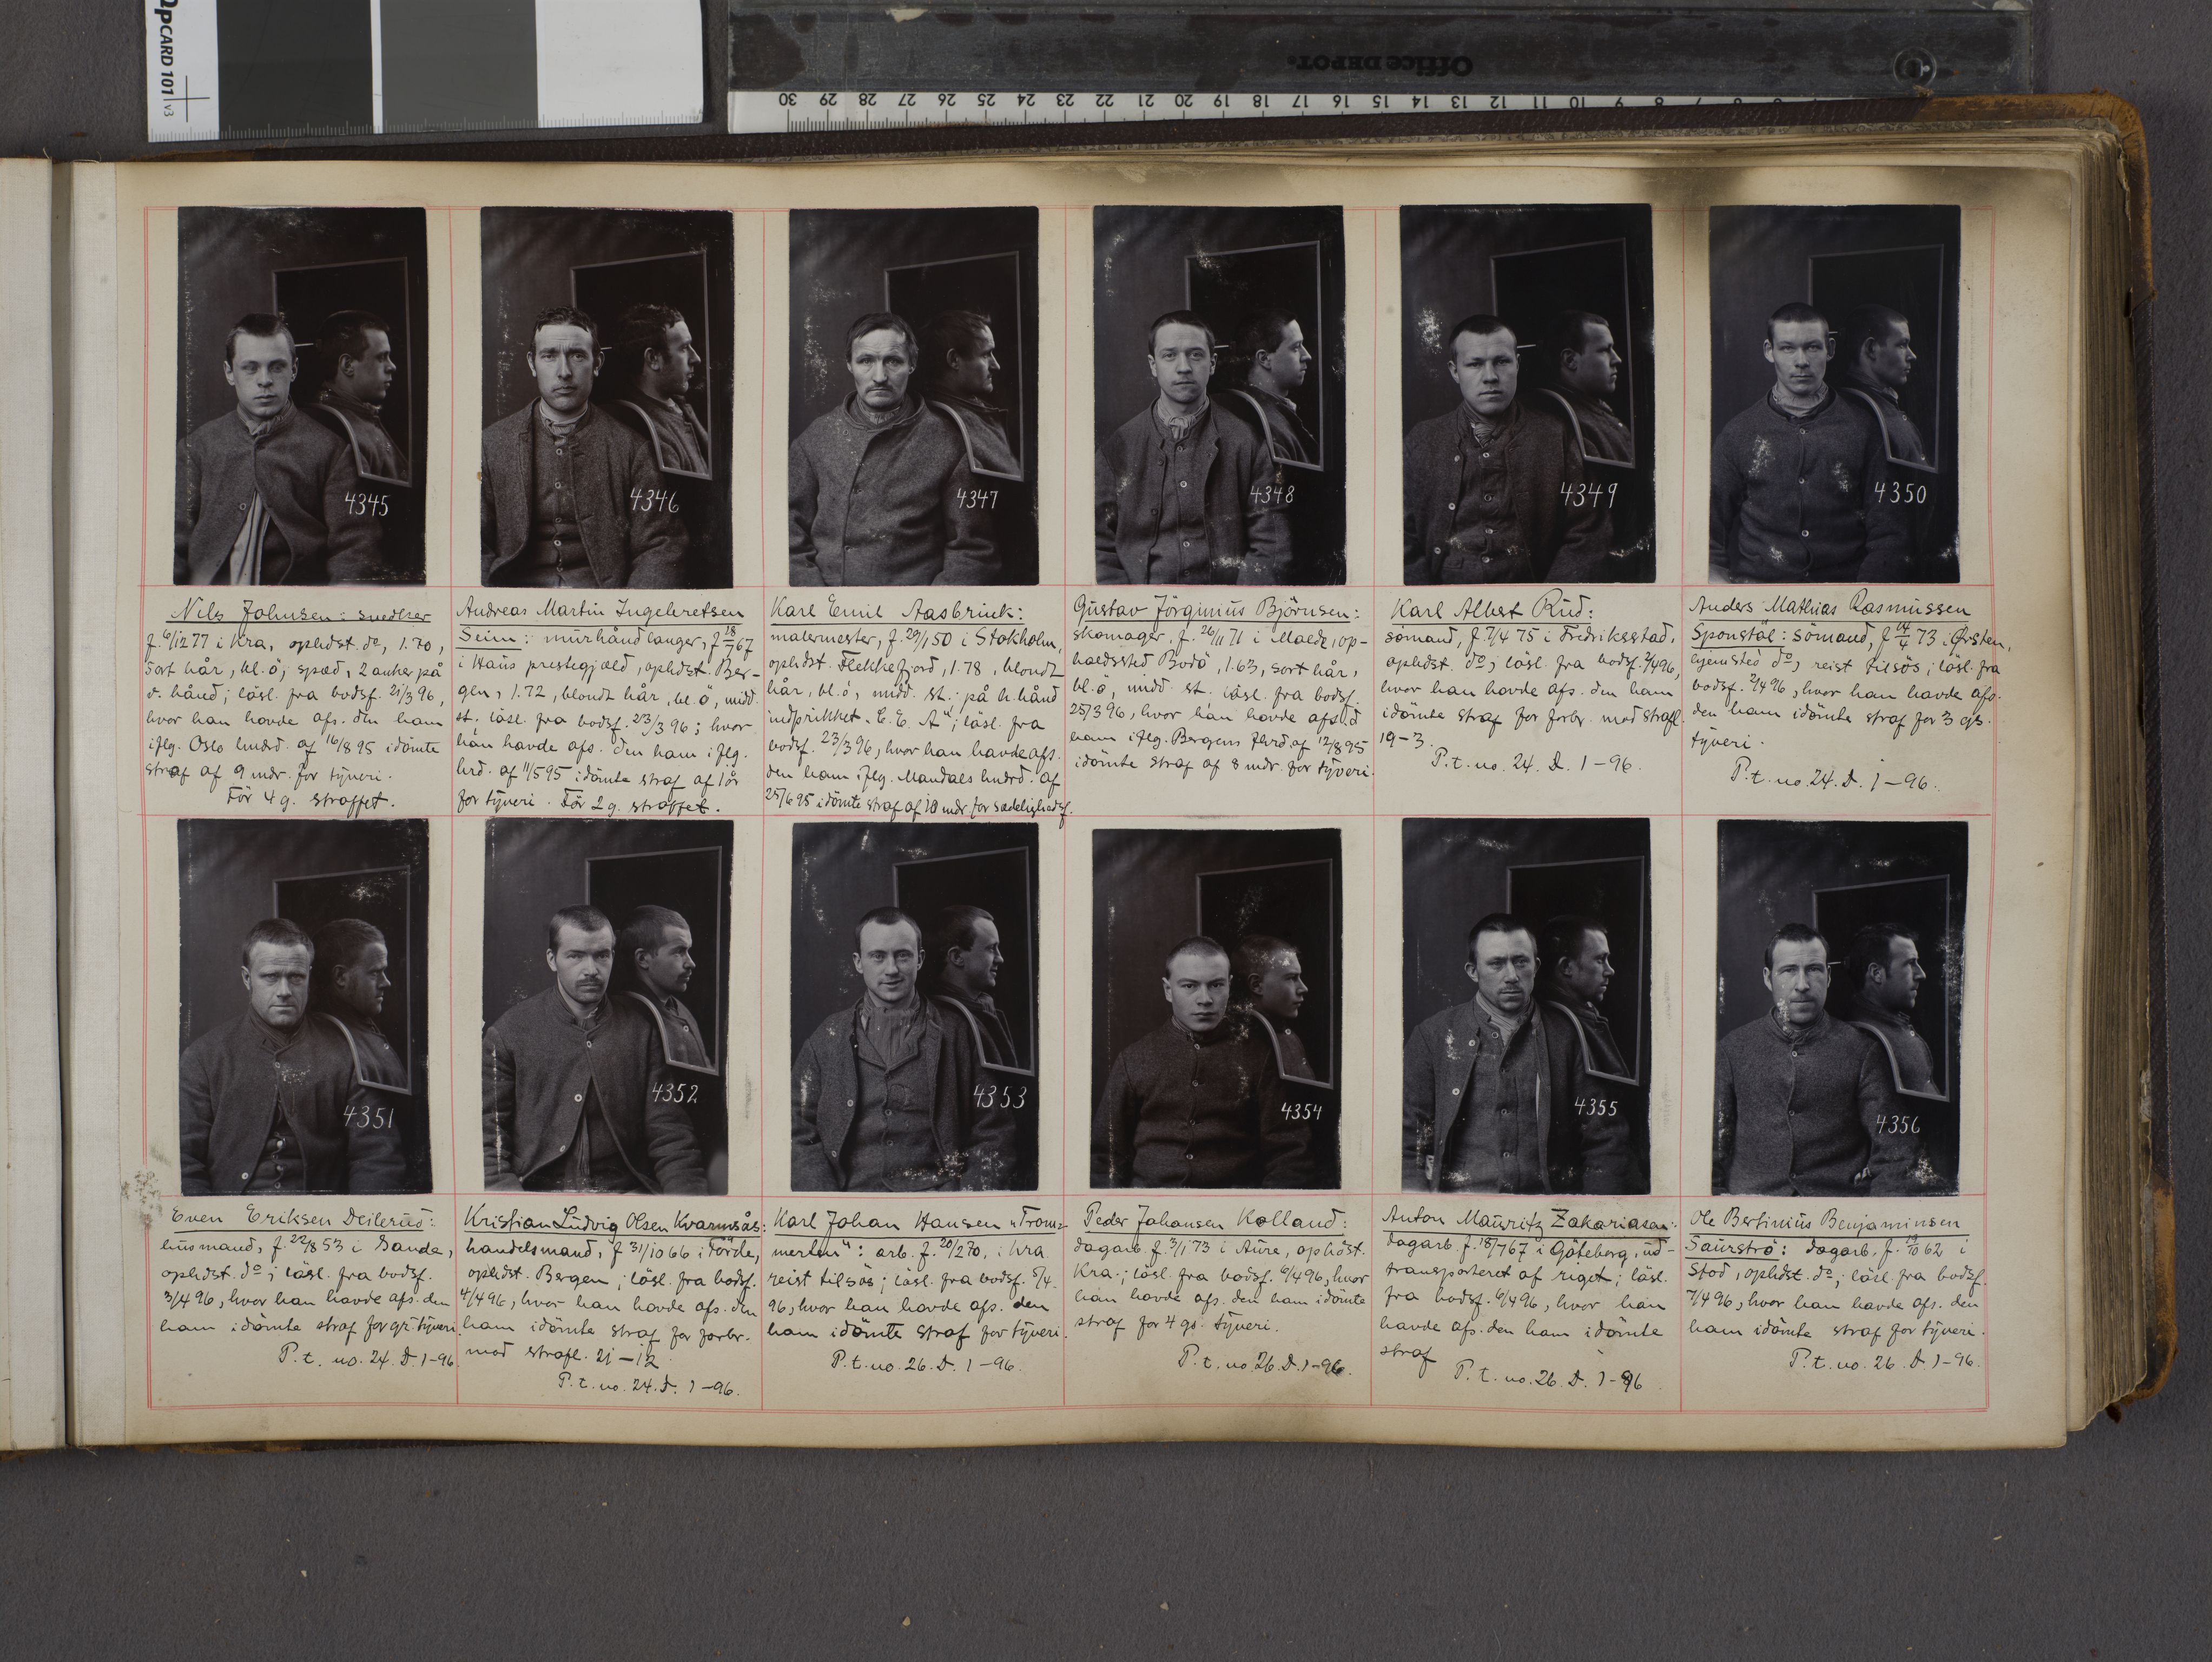 OpCARD 101 v3
Office DEPOT.
30 29 28 27 26 25 24 23 22 21 20 19 18 17 16 15 14 13 12 11 10 9 8 7 6
4345
4346
4347
4348
4349
4350
Nils Johnsen: snedker
f. 6/12 77 i Kra, ophdst. do, 1.70,
sort hår, bl. ö; spæd, 2 anker på
v. hånd; lösl. fra bodsf. 21/3 96,
hvor han havde afs. den ham
iflg. Oslo hmdrd. af 16/8 95 idömte
straf af 9 mdr. for tyveri.
För 4 g. straffet.
Andreas Martin Ingebretsen
Seim: mürhåndlanger, f 18/7 67
i Haüs prestegjæld, ophdst. Ber-
gen, 1.72, blondt hår, bl. ö, midd.
st. lösl. fra bodsf. 23/3 96; hvor
han havde afs. den ham iflg.
hrd. af 11/5 95 idömte straf af 1 år
for tyveri. För 2 g. straffet.
Karl Emil Aasbrink:
malermester, f. 29/1 50 i Stokholm,
ophdst. Flekkefjord, 1.78, blondt
hår, bl. ö, midd. st.; på h. hånd
indprikket "E. E. A"; lösl. fra
bodsf. 23/3 96, hvor han havde afs.
den ham iflg. Mandals hmdrd. af
25/6 95 idömte straf af 10 mdr for sædelighedsf.
Güstav Jörginiüs Björnsen:
skomager, f. 26/11 71 i Maalz, op-
holdssted Bodö, 1.63, sort hår,
bl. ö, midd. st. lösl. fra bodsf.
25/3 96, hvor han havde afs. d
ham iflg. Bergens Hrd. af 12/8 95
idömte straf af 8 mdr. for tyveri.
Karl Albert Rüd:
sömand, f. 7/4 75 i Fredriksstad,
ophdst. do; lösl. fra bodsf. 2/4 96,
hvor han havde afs. den ham
idömte straf for forbr. mod strafl.
19-3.
P.t. no. 24. D. 1-96.
Anders Mathias Rasmüssen
Sponstöl: sömand, f 14/4 73 i Ørsten,
hjemsted do, reist tilsös; lösl. fra
bodsf. 2/4 96, hvor han havde afs.
den ham idömte straf for 3 gs.
tyveri.
P.t. no. 24. D. 1-96.
4351
4352
4353
4354
4355
4356
Even Eriksen Deilerüd:
hüsmand, f. 22/8 53 i Sande,
ophdst. do; lösl. fra bodsf.
3/4 96, hvor han havde afs. den
ham idömte straf for gr. tyveri
P.t. no. 24. D. 1-96
Kristian Lüdvig Olsen Kvarmsås:
handelsmand, f 31/10 66 i Förde,
ophdst. Bergen; lösl. fra bodsf.
4/4 96, hvor han havde afs. den
ham idömte straf for forbr.
mod strafl. 21-12
P.t. no. 24. D. 1-96.
Karl Johan Hansen "Trom-
merlin": arb. f. 20/2 70, i Kra
reist tilsös; lösl. fra bodsf. 5/4
96, hvor han havde afs. den
ham idömte straf for tyveri.
P.t. no. 26. D. 1-96.
Peder Johansen Kolland:
dagarb. f. 3/1 73 i Aüre, ophöst.
Kra.; lösl. fra bodsf. 6/4 96, hvor
han havde afs. den ham idömte
straf for 4 gs. tyveri.
P.t. no. 26. D. 1-96.
Anton Maüritz Zakariasen:
dagarb. f. 18/7 67 i Göteborg, üd-
transporteret af riget; lösl.
fra bodsf. 6/4 96, hvor han
havde afs. den ham idömte
straf
P.t. no. 26. D. 1-96
Ole Bertiniüs Benjaminsen
Saürströ: dagarb. f. 19/10 62 i
Stod, ophdst. do; lösl. fra bodsf.
7/4 96, hvor han havde afs. den
ham idömte straf for tyveri.
P.t. no. 26. D. 1-96.